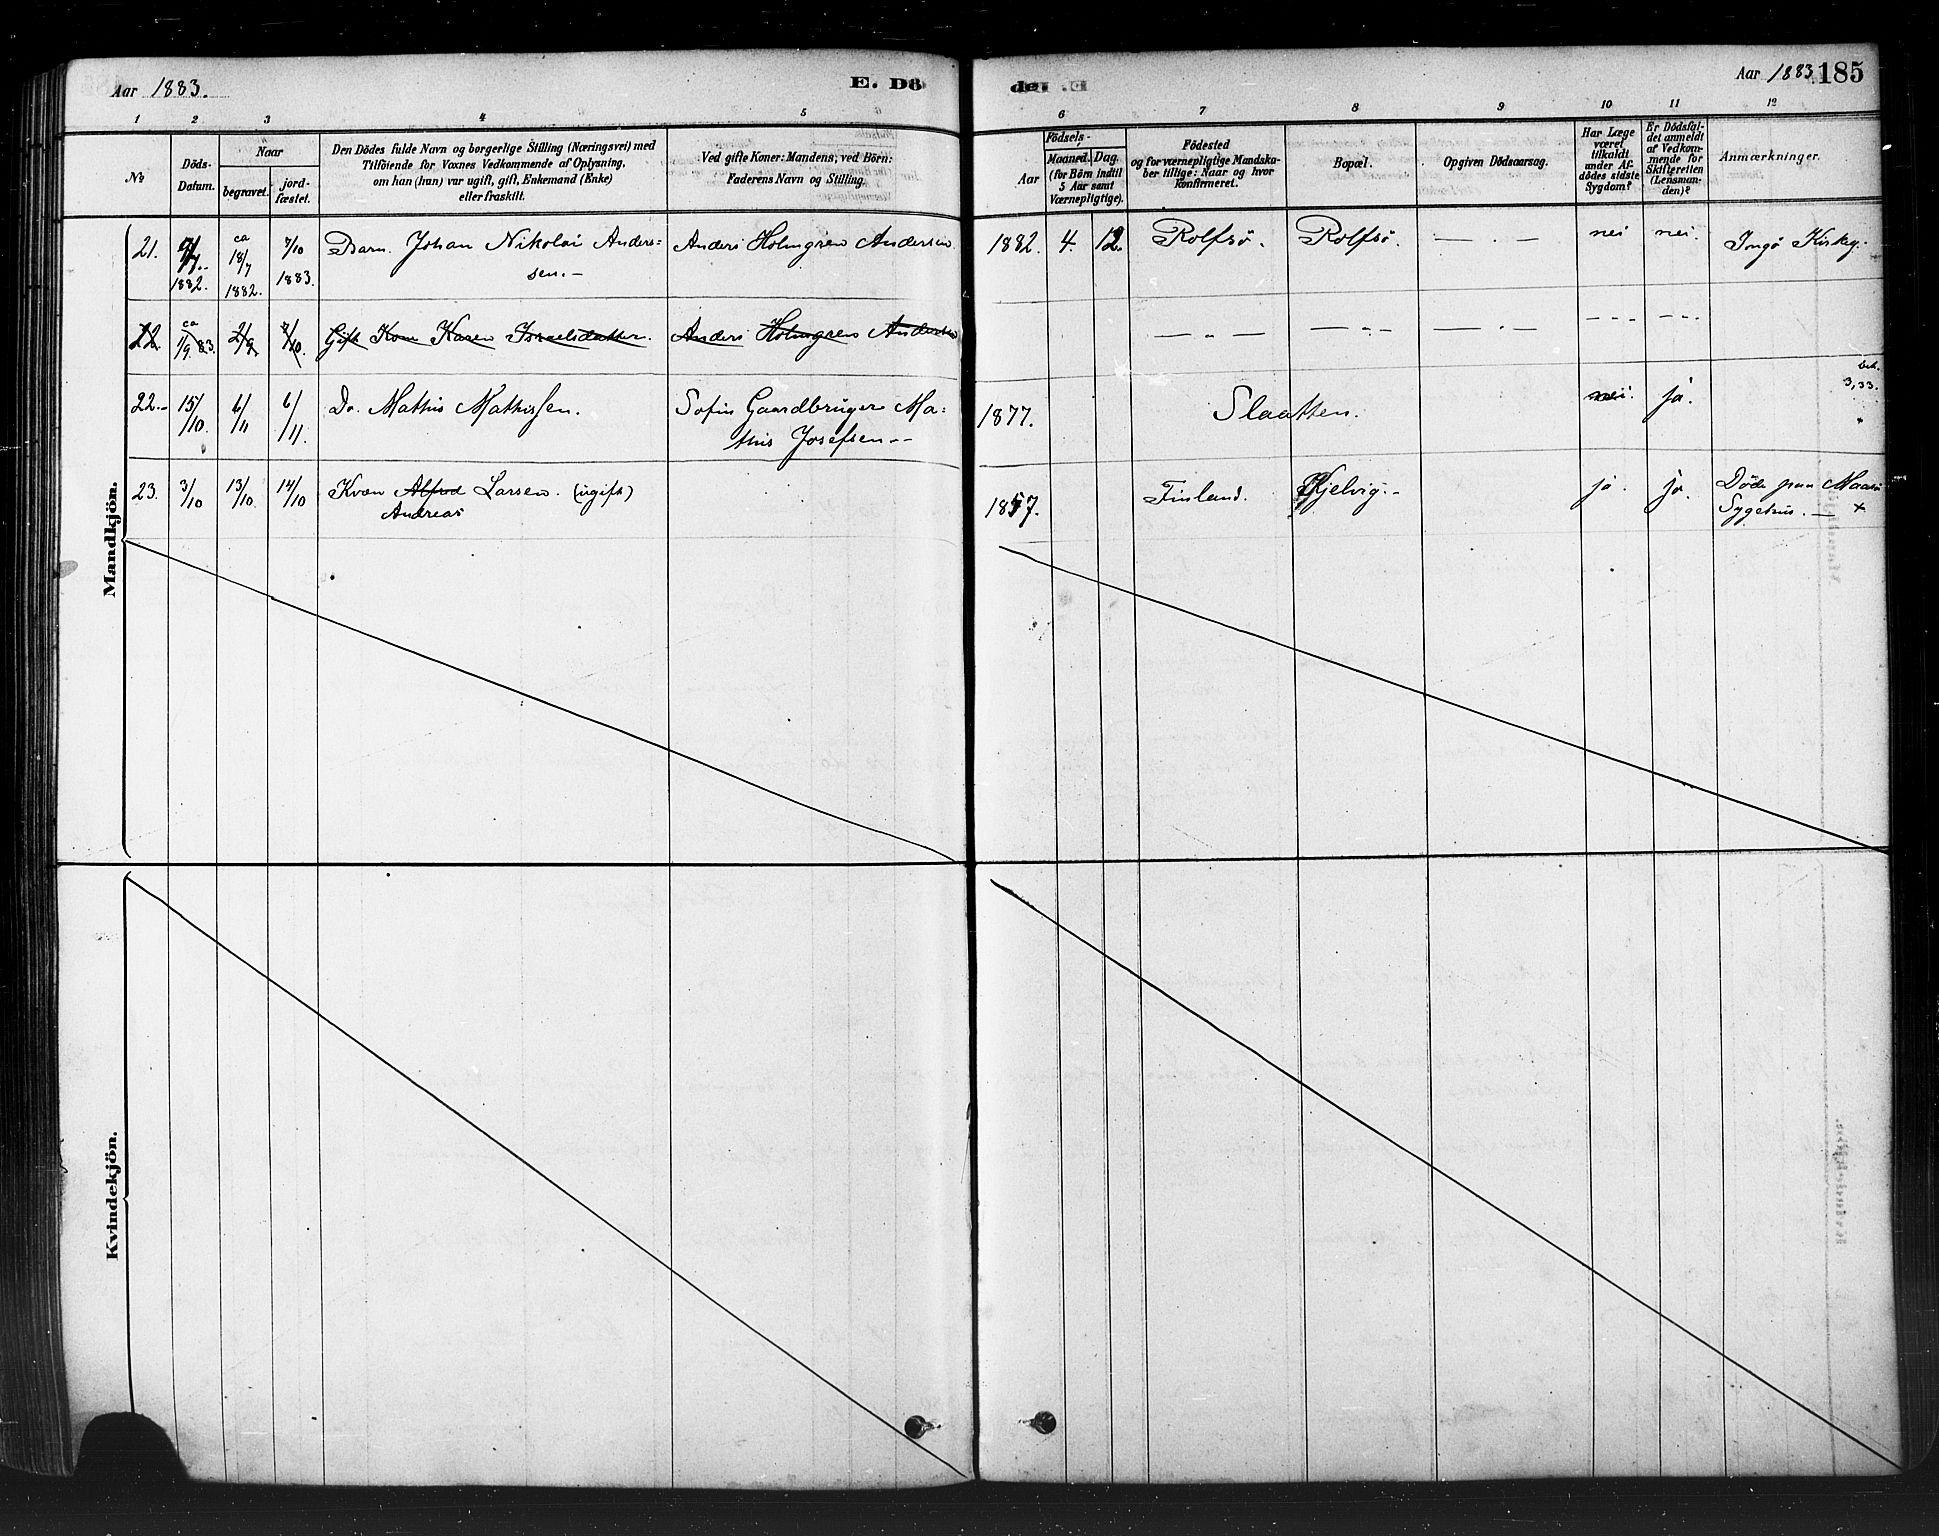 Aar 1883.
E. Dö
1
2
3
4
5
№
Döds-
Datum.
Naar
begravet.
jord-
fæstet.
Den Dödes fulde Navn og borgerlige Stilling (Næringsvei) med
Tilföiende for Voxnes Vedkommende af Oplysning,
om han (hun) var ugift, gift, Enkemand (Enke)
eller fraskilt.
Ved gifte Koner: Mandens, ved Börn:
Faderens Navn og Stilling.
Mandkjön.
21.
1882.
ca
18/7
1882.
7/10
1883.
Barn. Johan Nikolai Anders=
sen.-
Anders Holmgren Andersen
22.
ca
1/9 83.
2/9
7/10.
Gift Kone Karen Israelsdatter.
Anders Holmgren Andersen
22.-
15/10.
6/11
6/11.
Do. Mathis Mathissen.
Sofin Gaardbruger Ma=
this Josefsen--
23.
3/10
13/10.
14/10
Kvæn Alfred Larsen. (ugift)
Andreas
Kvindekjön.
den E.
Aar 1883.
185
6
7
8
9
10
11
12
Födsels-
Aar
Maaned.
Dag.
(for Börn indtil
5 Aar samt
Værnepligtige).
Födested
og for værnepligtige Mandska-
ber tillige: Naar og hvor
konfirmeret.
Bopæl.
Opgiven Dödsaarsag.
Har Læge
været
tilkaldt
under Af-
dödes sidste
Sygdom?
Er Dödsfal-
det anmeldt
af Vedkom-
mende for
Skifteretten
(Lensman-
den)?
Anmærkninger.
1882.
4.
12.
Rolfsö.
Rolfsö.
— . —
nei
nei.
Ingö Kirkeg.
— „ —
— . —
— . —
- - -
- - -
1877.
Slaatten.
nei.
ja.
3,33.
1857.
Finland.
Gjelvig.-
ja.
ja.
Döde paa Maasö
Sygehus. — x